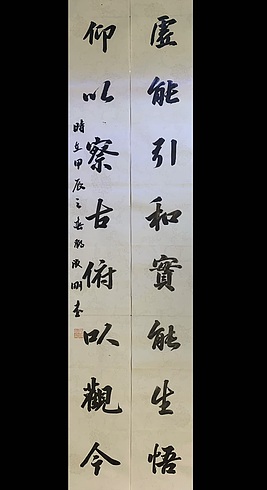 虚能引和實能生悟
仰以察古俯以觀今
時在甲辰之春